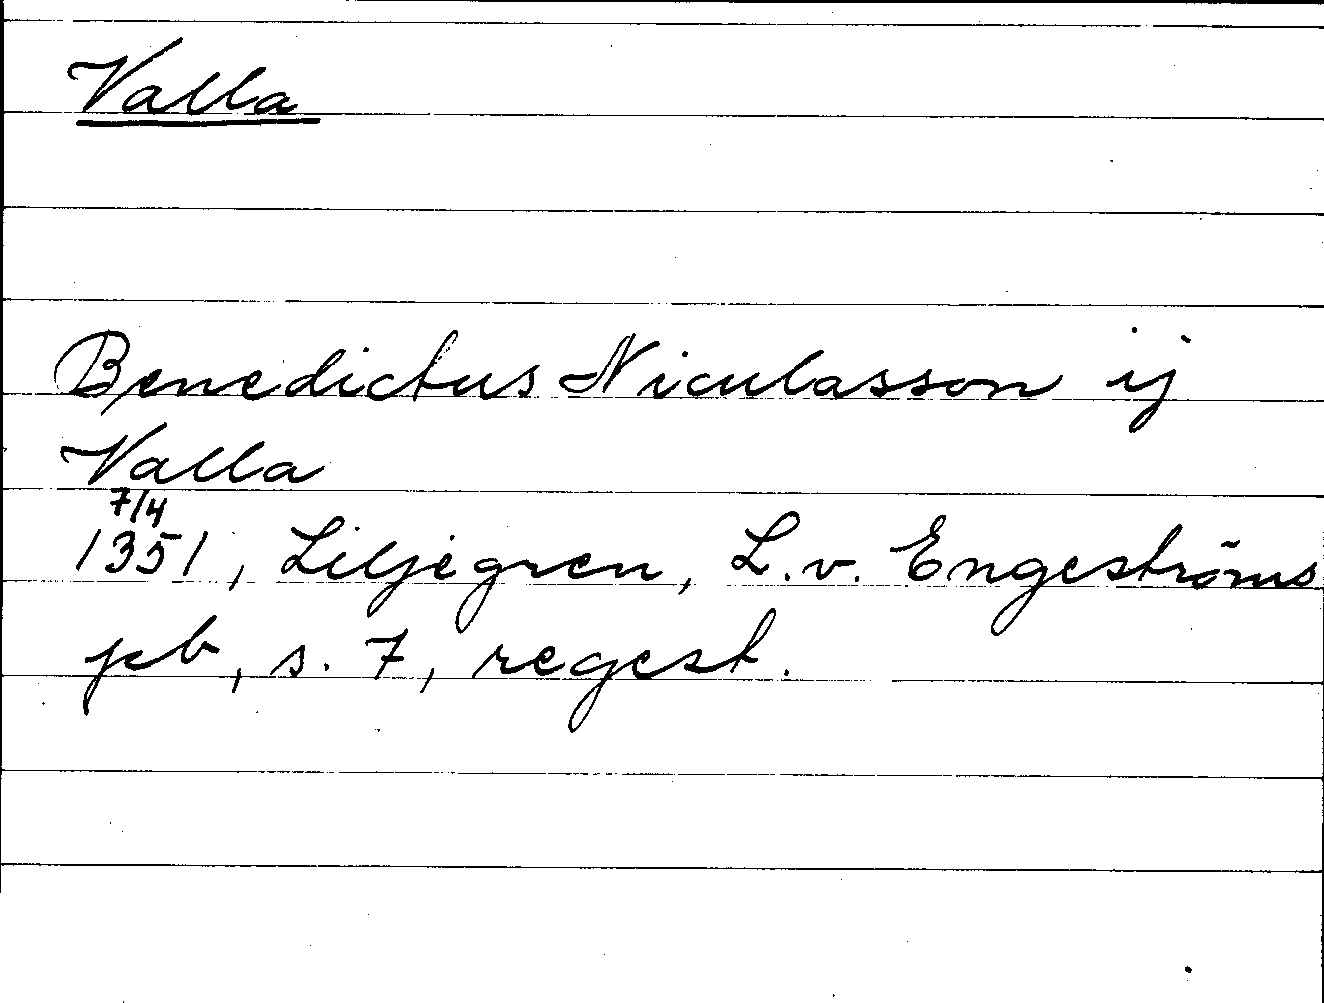 Valla
Benedictus Niculasson ij
Valla
7/4
1351, Liljegren, L. v. Engeströms
peb, s. 7, regest.